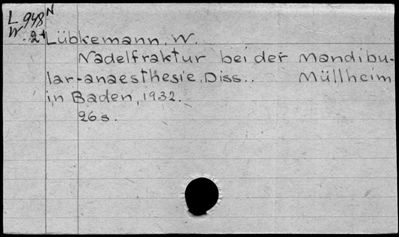 L 948 N
W. 2+
Lübkemann, W.
Nadelfraktur bei der Mandibu-
lar-anaesthesie. Diss.. Müllheim
in Baden, 1932.
26s.